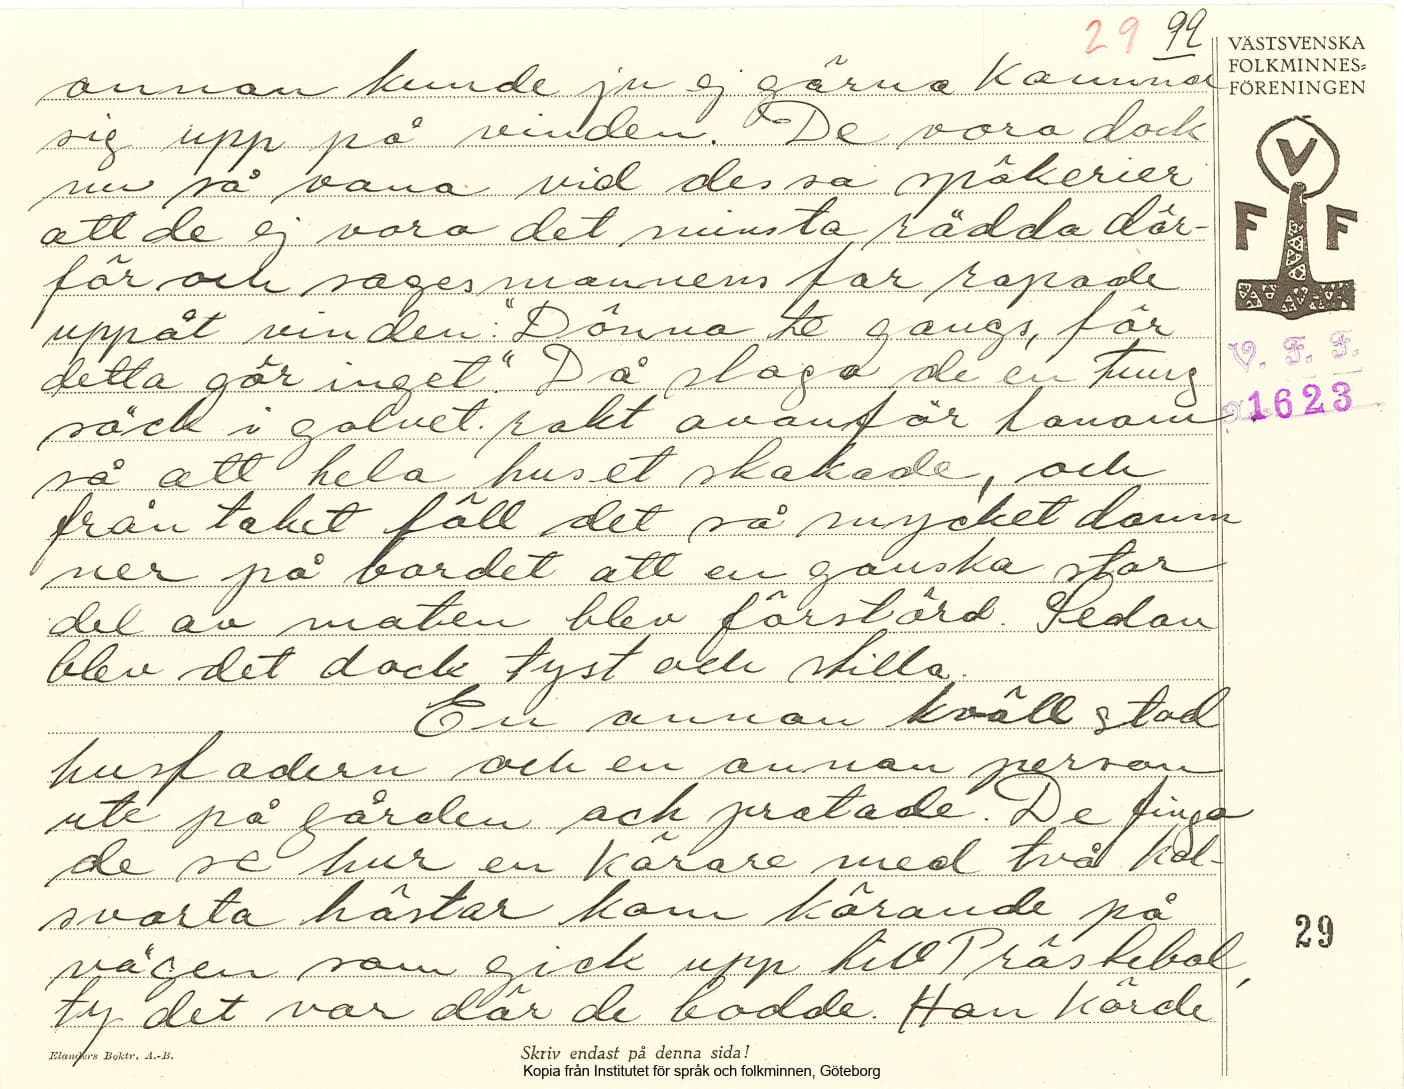 29 92
VÄSTSVENSKA
FOLKMINNES=
FÖRENINGEN
annan kunde ju ej gärna komma
sig upp på vinden. De voro dock
nu så vana vid dessa spökerier
att de ej voro det minsta rädda där-
för och sagesmannens far ropade
uppåt vinden: "Dönna te gangs, för
detta gör inget." Då slogo de en tung
säck i golvet rakt ovanför honom
så att hela huset skakade, och
från taket föll det så mycket damm
ner på bordet att en ganska stor
del av maten blev förstörd. Sedan
blev det dock tyst och stilla.
En annan kväll stod
husfadern och en annan person
ute på gården och pratade. De fingo
de se hur en körare med två kol-
svarta hästar kom körande på
vägen som gick upp till Prästebol,
ty det var där de bodde. Han körde
V
F F
V. F. F.
1623
29
Elanders Boktr. A.-B.
Skriv endast på denna sida!
Kopia från Institutet för språk och folkminnen, Göteborg